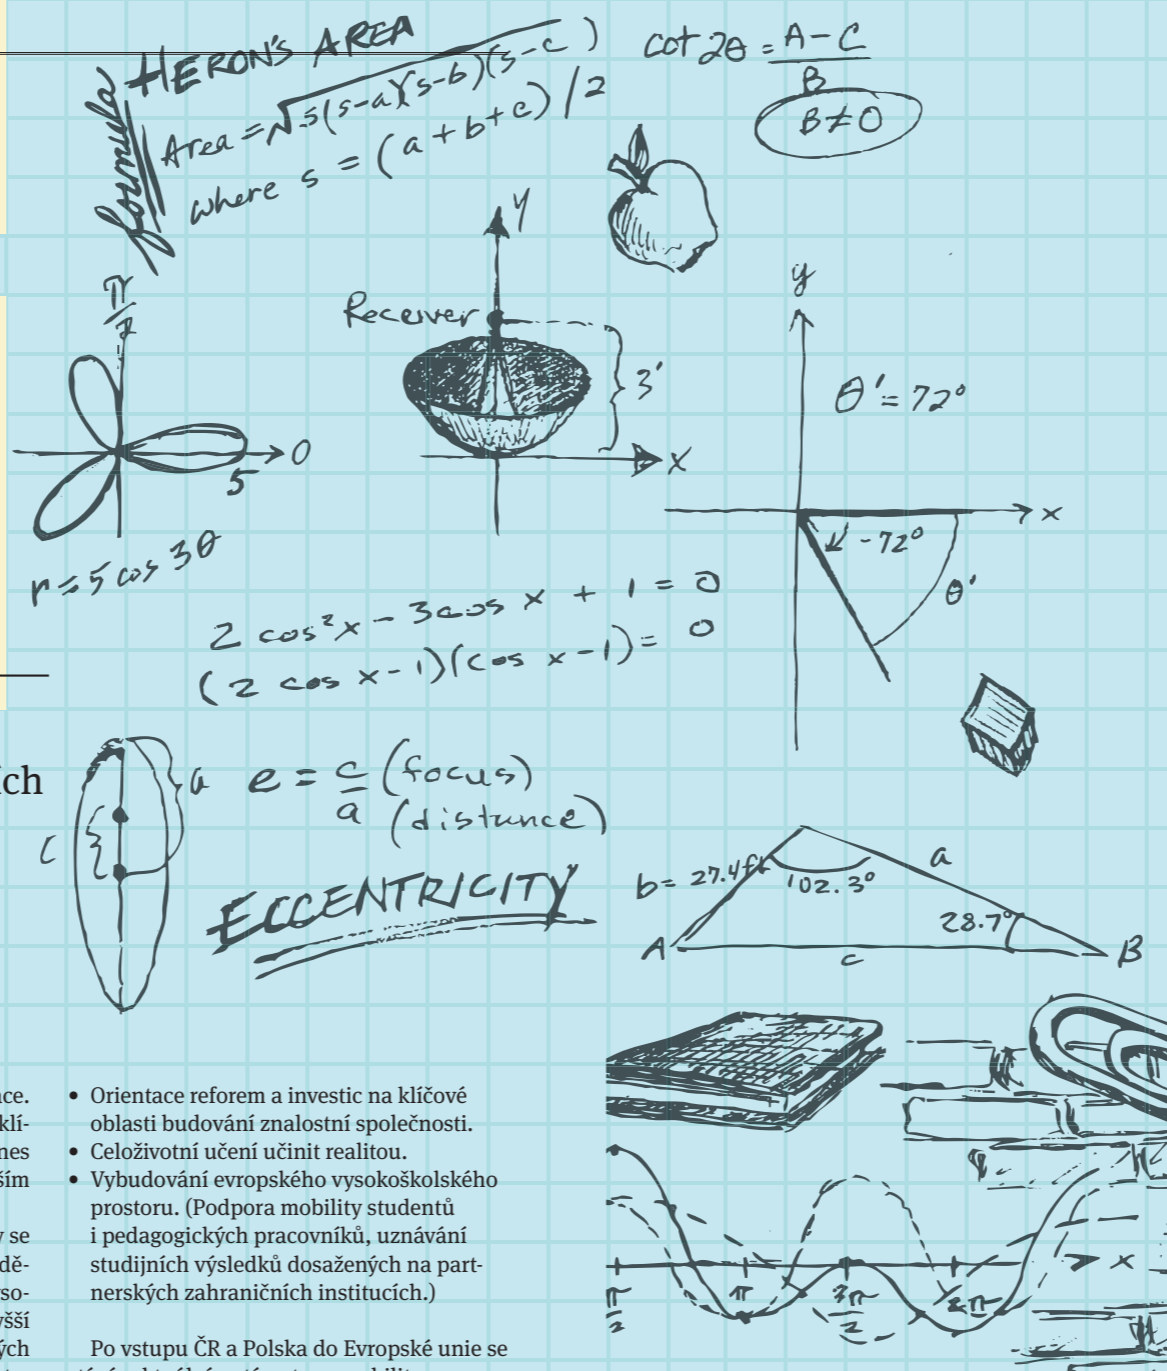 HERON'S AREA
formula
Area = √s(s-a)(s-b)(s-c)
where s = (a+b+c)/2
cot 2θ = A-C
B
B≠0
y
Receiver
3'
x
π
2
0
5
r = 5 cos 3θ
y
θ' = 72°
x
-72°
θ'
2 cos²x - 3 cos x + 1 = 0
(2 cos x-1)(cos x-1) = 0
ích
a
c
e = c (focus)
a (distance)
ECCENTRICITY
b = 27.4ft
102.3°
a
28.7°
A
c
B
• Orientace reforem a investic na klíčové
oblasti budování znalostní společnosti.
• Celoživotní učení učinit realitou.
• Vybudování evropského vysokoškolského
prostoru. (Podpora mobility studentů
i pedagogických pracovníků, uznávání
studijních výsledků dosažených na part-
nerských zahraničních institucích.)
Po vstupu ČR a Polska do Evropské unie se
π
2
π
3π
2
2π
x